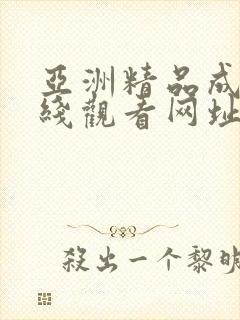 亞洲精品成
綫觀看网址
殺出一个黎明